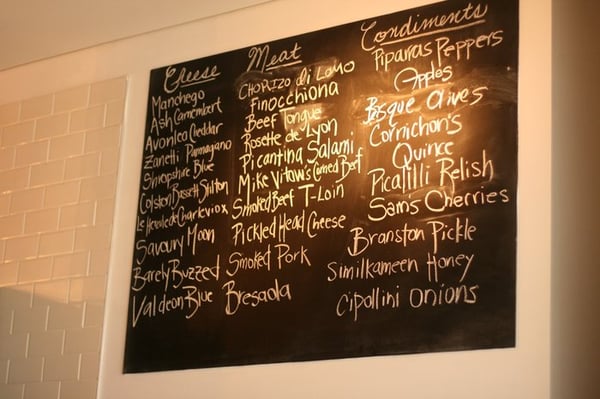 Cheese
Manchego
Ash Camembert
Avonlea Cheddar
Zanetti Parmagano
Shropshire Blue
Colston Bassett Stilton
Le Hercule de Charlevoix
Savoury Moon
Barely Buzzed
Valdeon Blue
Meat
Chorizo di Lomo
Finocchiona
Beef Tongue
Rosette de Lyon
Picantina Salami
Mike Vitow's Corned Beef
Smoked Beef T-Loin
Pickled Head Cheese
Smoked Pork
Bresaola
Condiments
Piparras Peppers
Apples
Basque Olives
Cornichons
Quince
Picalilli Relish
Sam's Cherries
Branston Pickle
Similkameen Honey
Cipollini Onions